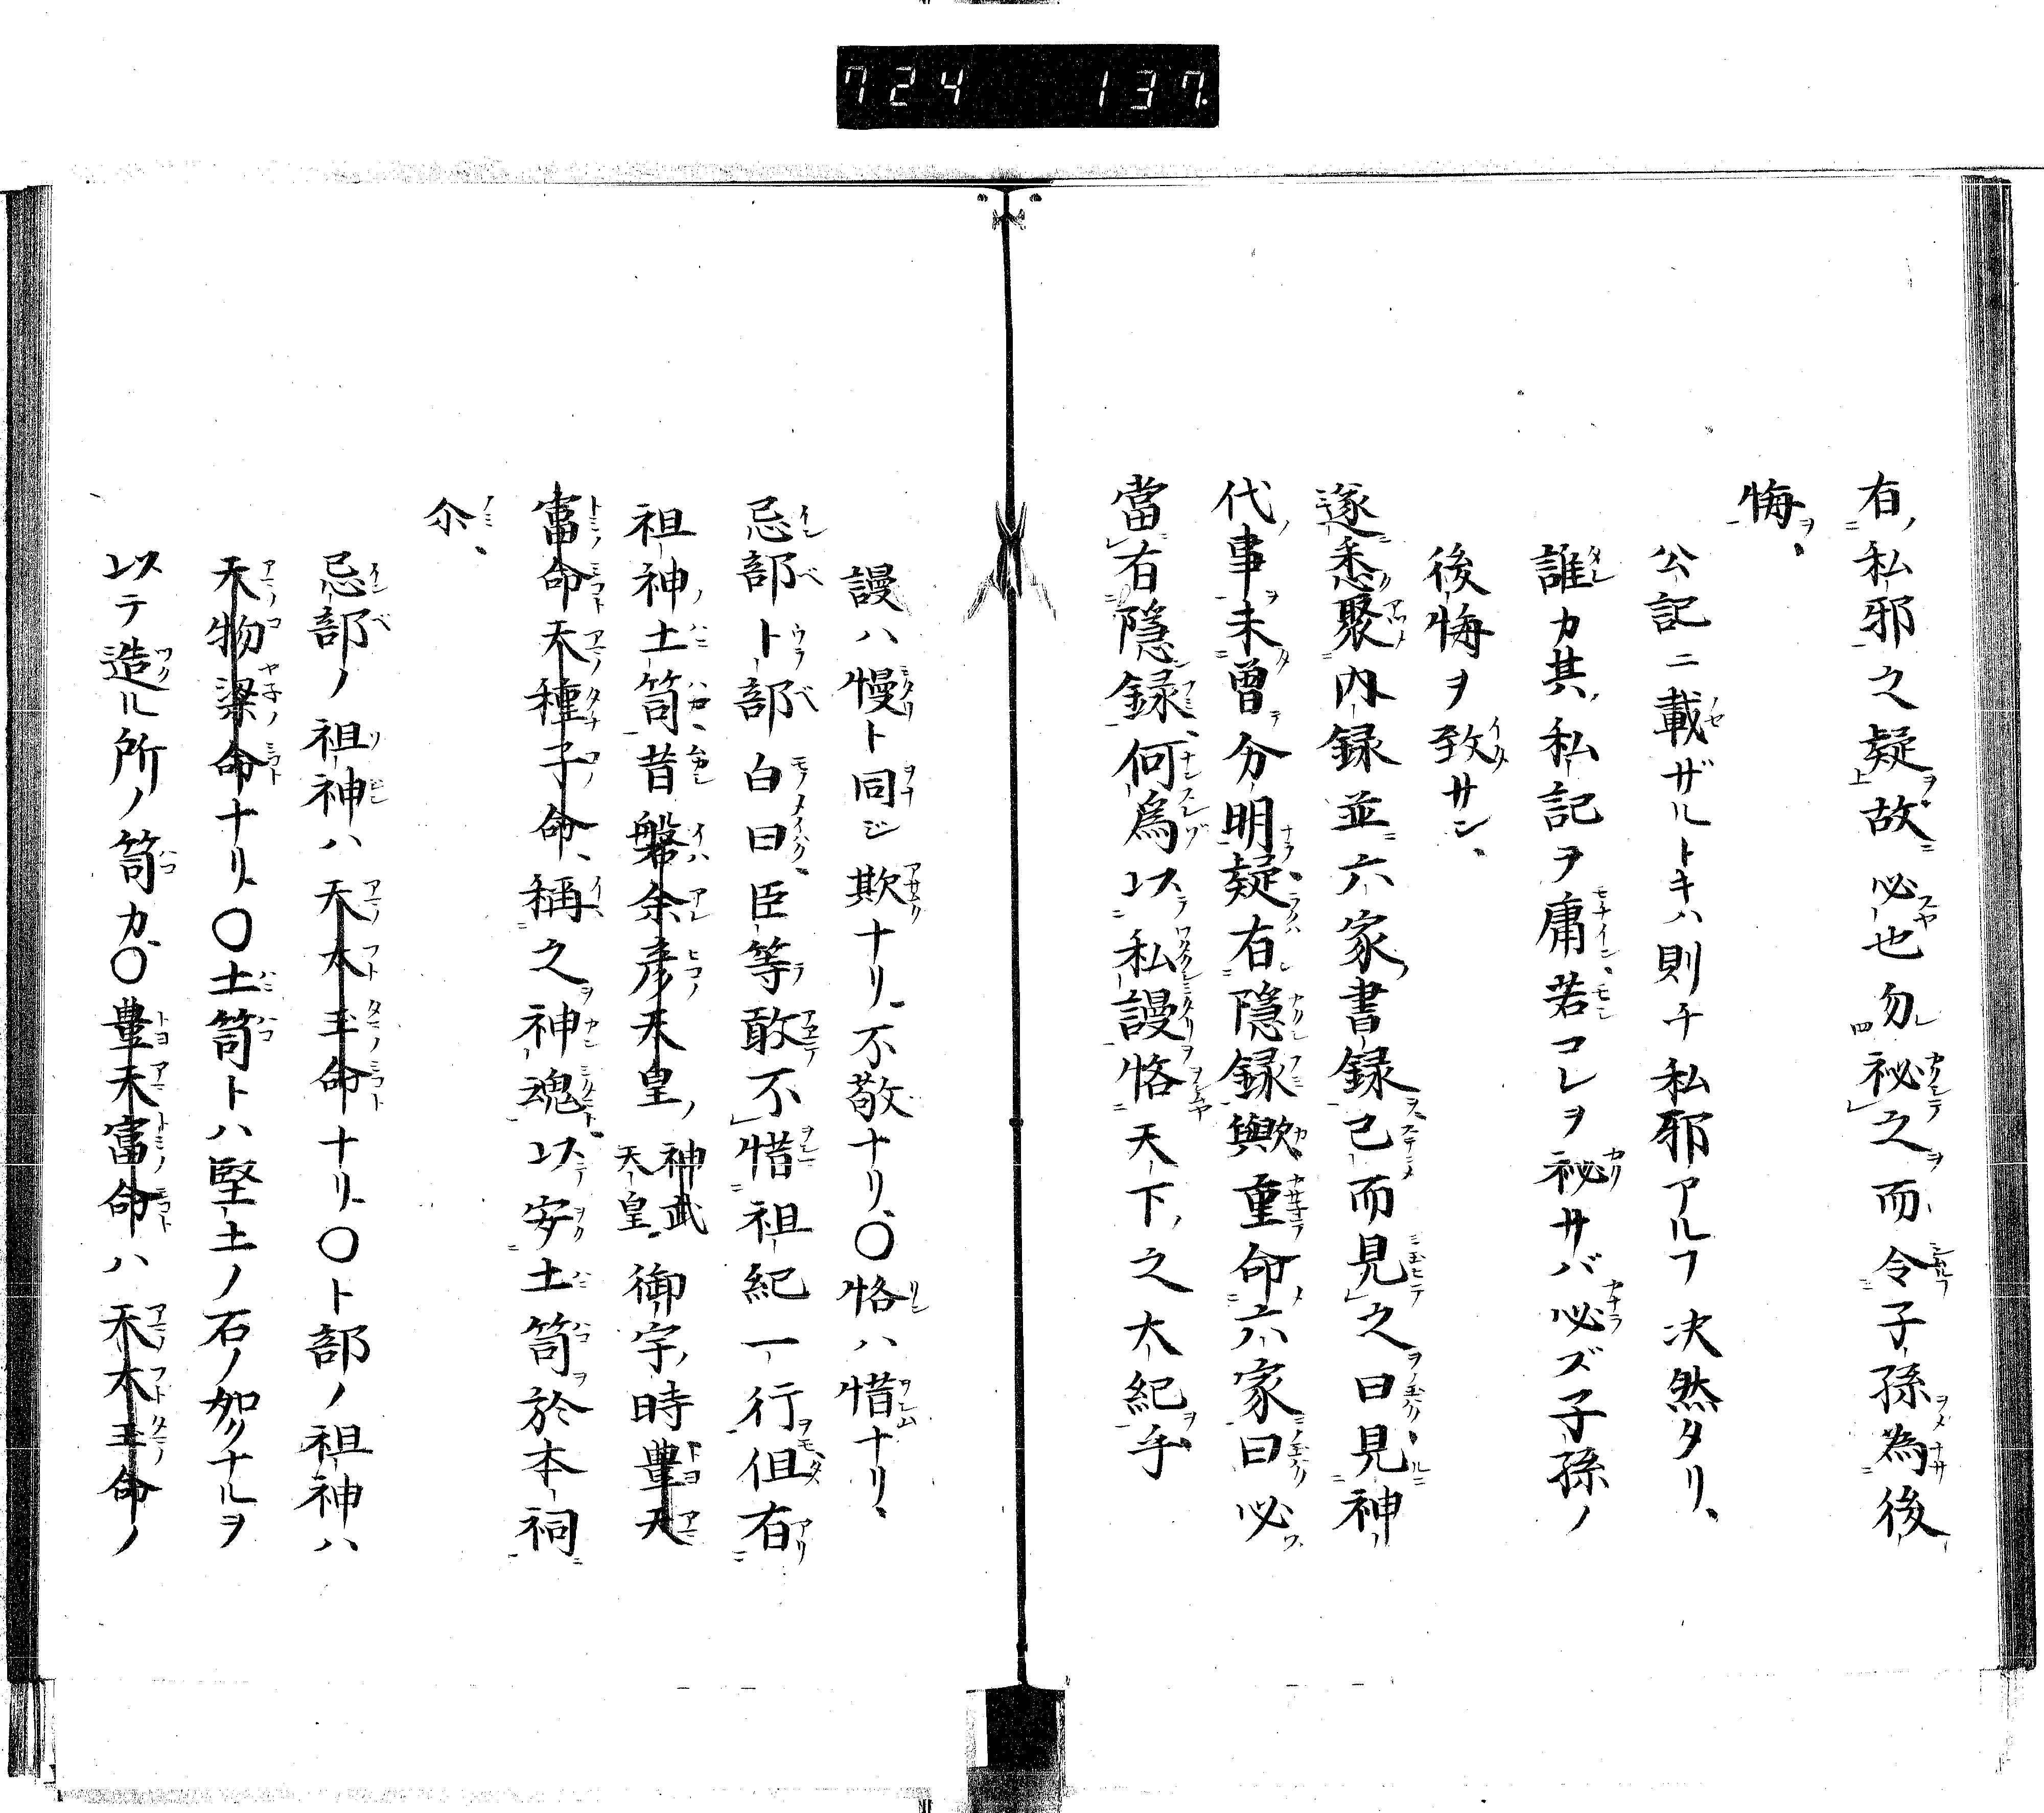 724 137.
有私邪之疑故必也勿祕之而令子孫為後
悔
公記ニ載ザルトキハ則チ私邪アルヿ決然タリ
誰カ其私記ヲ庸若コレヲ祕サバ必ズ子孫ノ
後悔ヲ致サン
遂悉聚内録並六家書録已而見之曰見神
代事未曽分明疑有隠録歟重命六家曰必
當有隠録何為以私謾悋天下之大紀乎
謾ハ慢ト同ジ欺ナリ不敬ナリ○悋ハ惜ナリ
忌部卜部白曰臣等敢不惜祖紀一行但有
祖神土筒昔磐余彦天皇神武天皇御宇時豊天
富命天種子命稱之神魂以安土筒於本祠
尒
忌部ノ祖神ハ天太玉命ナリ○卜部ノ祖神ハ
天物梁命ナリ○土筒トハ堅土ノ石ノ如クナルヲ
以テ造ル所ノ筒カ○豊天富命ハ天太玉命ノ